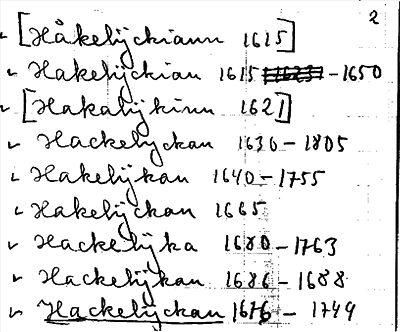 2
[Håkelÿckiann 1615]
Hakelÿckian 1615 – 1650
[Hakalÿkinn 1621]
Hackelÿckan 1630 – 1805
Hakelÿkan 1640 – 1755
Hakelÿckan 1665
Hackelÿka 1680 – 1763
Hackelÿkan 1686 – 1688
Hackelÿckan 1676 – 1749